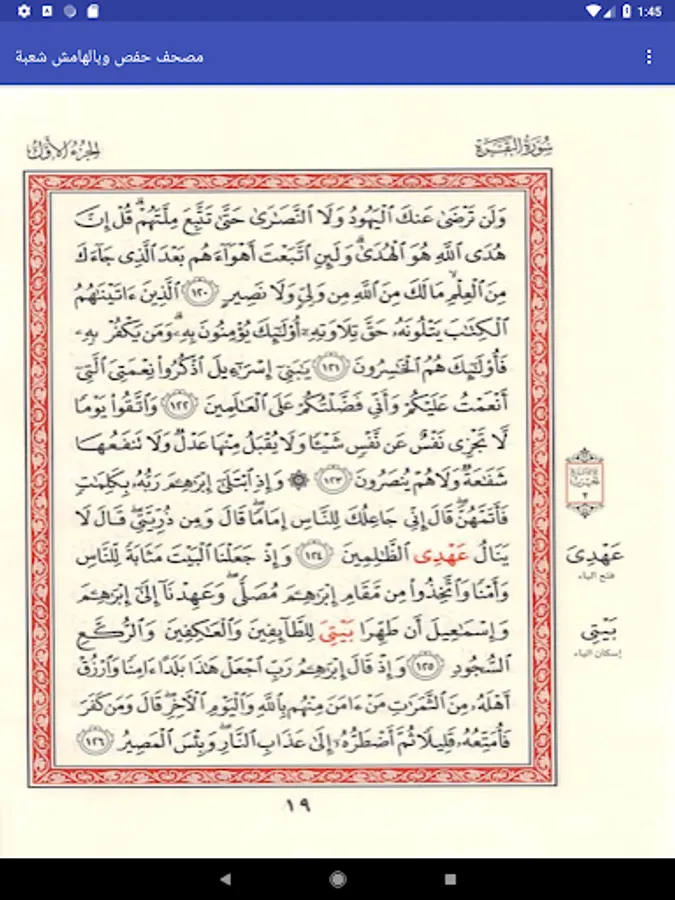 1:45
مصحف حفص وبالهامش شعبة
سُورَةُ البَقَرَةِ
الجُزْءُ الأَوَّلُ
وَلَن تَرْضَىٰ عَنكَ ٱلْيَهُودُ وَلَا ٱلنَّصَٰرَىٰ حَتَّىٰ تَتَّبِعَ مِلَّتَهُمْ ۗ قُلْ إِنَّ
هُدَى ٱللَّهِ هُوَ ٱلْهُدَىٰ ۗ وَلَئِنِ ٱتَّبَعْتَ أَهْوَآءَهُم بَعْدَ ٱلَّذِى جَآءَكَ
مِنَ ٱلْعِلْمِ ۙ مَا لَكَ مِنَ ٱللَّهِ مِن وَلِىٍّ وَلَا نَصِيرٍ ١٢٠ ٱلَّذِينَ ءَاتَيْنَٰهُمُ
ٱلْكِتَٰبَ يَتْلُونَهُۥ حَقَّ تِلَاوَتِهِۦٓ أُو۟لَٰٓئِكَ يُؤْمِنُونَ بِهِۦ ۗ وَمَن يَكْفُرْ بِهِۦ
فَأُو۟لَٰٓئِكَ هُمُ ٱلْخَٰسِرُونَ ١٢١ يَٰبَنِىٓ إِسْرَٰٓءِيلَ ٱذْكُرُوا۟ نِعْمَتِىَ ٱلَّتِىٓ
أَنْعَمْتُ عَلَيْكُمْ وَأَنِّى فَضَّلْتُكُمْ عَلَى ٱلْعَٰلَمِينَ ١٢٢ وَٱتَّقُوا۟ يَوْمًا
لَّا تَجْزِى نَفْسٌ عَن نَّفْسٍ شَيْـًٔا وَلَا يُقْبَلُ مِنْهَا عَدْلٌ وَلَا تَنفَعُهَا
شَفَٰعَةٌ وَلَا هُمْ يُنصَرُونَ ١٢٣ ۞ وَإِذِ ٱبْتَلَىٰٓ إِبْرَٰهِـۧمَ رَبُّهُۥ بِكَلِمَٰتٍ
فَأَتَمَّهُنَّ ۖ قَالَ إِنِّى جَاعِلُكَ لِلنَّاسِ إِمَامًا ۖ قَالَ وَمِن ذُرِّيَّتِى ۖ قَالَ لَا
يَنَالُ عَهْدِى ٱلظَّٰلِمِينَ ١٢٤ وَإِذْ جَعَلْنَا ٱلْبَيْتَ مَثَابَةً لِّلنَّاسِ
وَأَمْنًا وَٱتَّخِذُوا۟ مِن مَّقَامِ إِبْرَٰهِـۧمَ مُصَلًّى ۖ وَعَهِدْنَآ إِلَىٰٓ إِبْرَٰهِـۧمَ
وَإِسْمَٰعِيلَ أَن طَهِّرَا بَيْتِىَ لِلطَّآئِفِينَ وَٱلْعَٰكِفِينَ وَٱلرُّكَّعِ
ٱلسُّجُودِ ١٢٥ وَإِذْ قَالَ إِبْرَٰهِـۧمُ رَبِّ ٱجْعَلْ هَٰذَا بَلَدًا ءَامِنًا وَٱرْزُقْ
أَهْلَهُۥ مِنَ ٱلثَّمَرَٰتِ مَنْ ءَامَنَ مِنْهُم بِٱللَّهِ وَٱلْيَوْمِ ٱلْـَٔاخِرِ ۖ قَالَ وَمَن كَفَرَ
فَأُمَتِّعُهُۥ قَلِيلًا ثُمَّ أَضْطَرُّهُۥٓ إِلَىٰ عَذَابِ ٱلنَّارِ ۖ وَبِئْسَ ٱلْمَصِيرُ ١٢٦
٢
عَهْدِىَ
فتح الياء
بَيْتِى
إسكان الياء
١٩